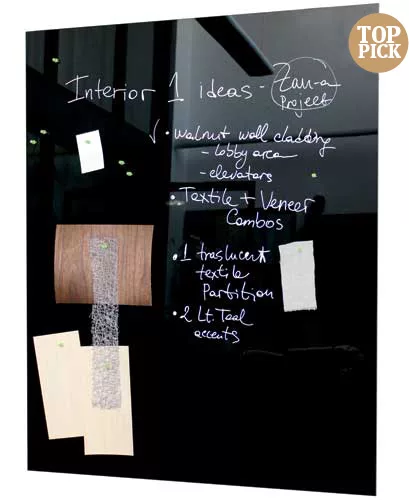 TOP
PICK
Interior 1 ideas - Zan-a
Project
✓ • walnut wall cladding
- lobby area
- elevators
• Textile + Veneer
Combos
• 1 traslucent
textile
Partition
• 2 Lt. Teal
accents